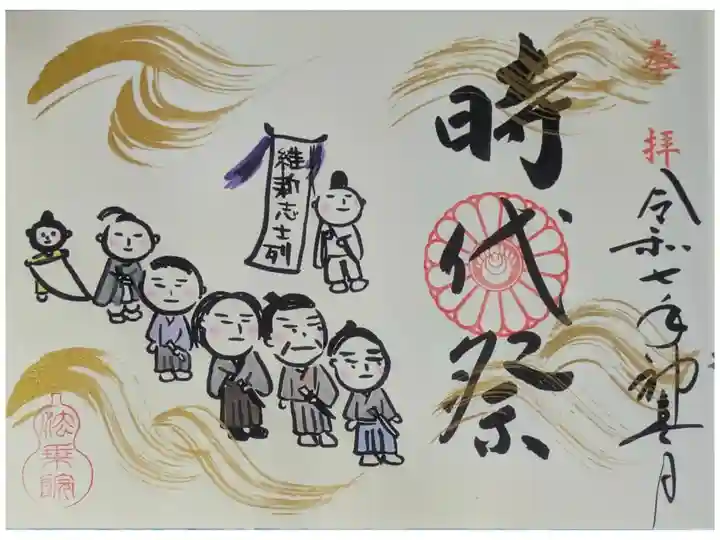 奉拝
令和七年神喜月
時代祭
維新志士列
法乗院